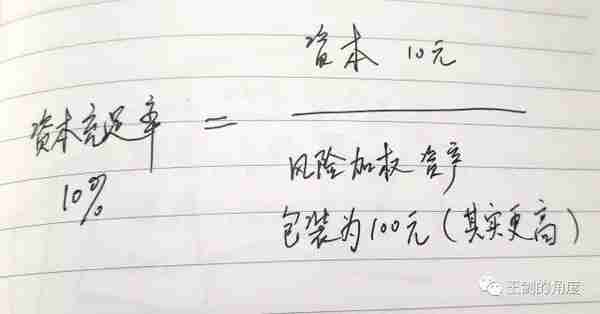 资本 10元
资本充足率 =
10%
风险加权资产
包装为100元（其实更高）
王剑的角度